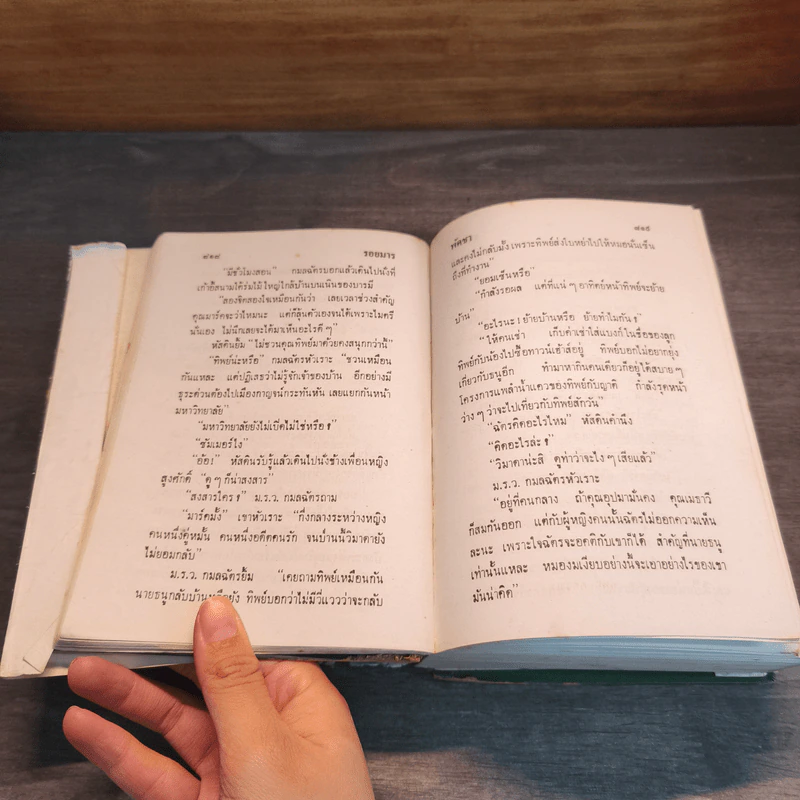 ๘๑๘ รอยมาร
"มีชั่วโมงสอน" กมลฉัตรบอกแล้วเดินไปนั่งที่
เก้าอี้สนามใต้ร่มไม้ใหญ่ใกล้บ้านบนเนินของบารมี
"ลองจิตลองใจเหมือนกันว่า เลยเวลาช่วงสำคัญ
คุณมาร์คจะว่าไหมนะ แต่ก็ลุ้นตัวเองจนได้เพราะไมตรี
นั่นเอง ไม่นึกเลยจะได้มาเห็นอะไรดี ๆ"
หัสดินยิ้ม "ไม่ชวนคุณทิพย์มาด้วยคงสนุกกว่านี้"
"ทิพย์น่ะหรือ" กมลฉัตรหัวเราะ "ชวนเหมือน
กันแหละ แต่ปฏิเสธว่าไม่รู้จักเจ้าของบ้าน อีกอย่างมี
ธุระด่วนต้องไปเมืองกาญจน์กระทันหัน เลยแยกกันหน้า
มหาวิทยาลัย"
"มหาวิทยาลัยยังไม่เปิดไม่ใช่หรือ ?"
"ซัมเมอร์ไง"
"อ้อ!" หัสดินรับรู้แล้วเดินไปนั่งข้างเพื่อนหญิง
สูงศักดิ์ "ดู ๆ ก็น่าสงสาร"
"สงสารใคร ?" ม.ร.ว. กมลฉัตรถาม
"มาร์คมั้ง" เขาหัวเราะ "กึ่งกลางระหว่างหญิง
คนหนึ่งคู่หมั้น คนหนึ่งอดีตคนรัก จนป่านนี้วิมาดายัง
ไม่ยอมกลับ"
ม.ร.ว. กมลฉัตรยิ้ม "เคยถามทิพย์เหมือนกัน
นายธนูกลับบ้านหรือยัง ทิพย์บอกว่าไม่มีวี่แววว่าจะกลับ
พัดชา ๘๑๙
และคงไม่กลับมั้ง เพราะทิพย์ส่งใบหย่าไปให้หมอนั่นเซ็น
ถึงที่ทำงาน"
"ยอมเซ็นหรือ"
"กำลังรอผล แต่ที่แน่ ๆ อาทิตย์หน้าทิพย์จะย้าย
บ้าน"
"อะไรนะ ! ย้ายบ้านหรือ ย้ายทำไมกัน ?"
"ให้คนเช่า เก็บค่าเช่าใส่แบงก์ในชื่อของลูก
ทิพย์กับน้องไปซื้อทาวน์เฮ้าส์อยู่ ทิพย์บอกไม่อยากยุ่ง
เกี่ยวกับธนูอีก ทำมาหากินคนเดียวก็อยู่ได้สบาย ๆ
โครงการแพลำน้ำแควของทิพย์กับญาติ กำลังรุดหน้า
ว่าง ๆ ว่าจะไปเที่ยวกับทิพย์สักวัน"
"ฉัตรคิดอะไรไหม" หัสดินคำนึง
"คิดอะไรล่ะ ?"
"วิมาดาน่ะสิ ดูท่าว่าจะไง ๆ เสียแล้ว"
ม.ร.ว. กมลฉัตรหัวเราะ
"อยู่ที่คนกลาง ถ้าคุณอุปมามั่นคง คุณเมธาวี
ก็สมกันออก แต่กับผู้หญิงคนนั้นฉัตรไม่ออกความเห็น
ละนะ เพราะใจฉัตรจะอคติกับเขาก็ได้ สำคัญที่นายธนู
เท่านั้นแหละ หมองมเงียบอย่างนี้จะเอาอย่างไรของเขา
มันน่าคิด"